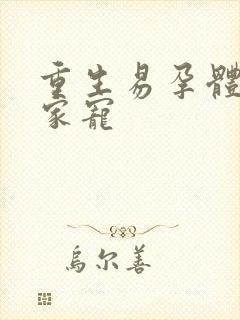 重生易孕體
家寵
烏尔善